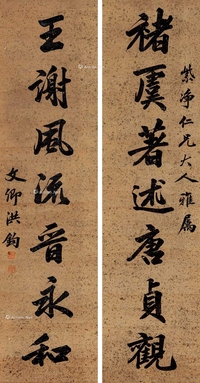 紫净仁兄大人雅属
褚虞著述唐貞觀
王謝風流晉永和
文卿洪鈞